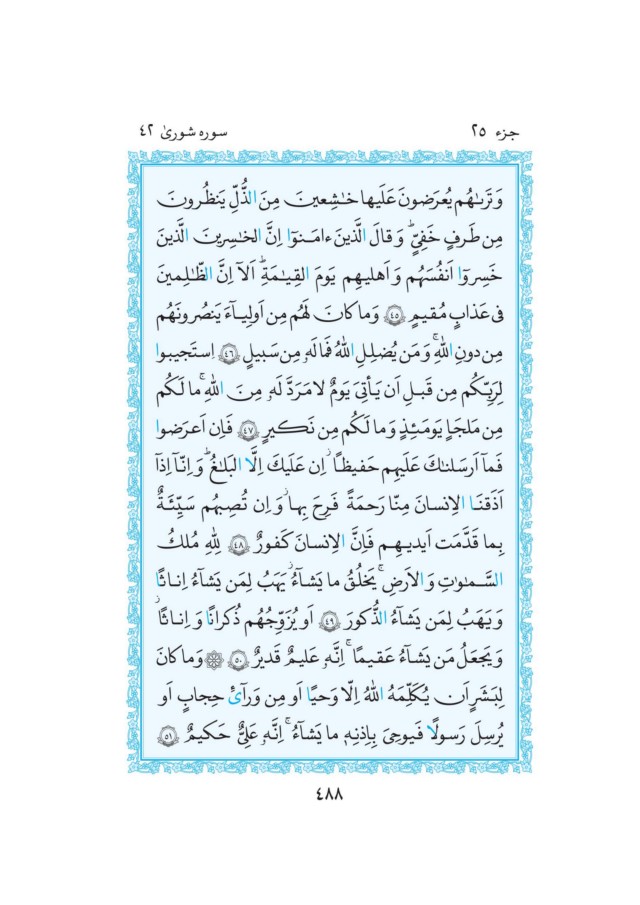 جزء ٢٥
سوره شوریٰ ٤٢
وَ تَرىٰهُم يُعرَضونَ عَلَيها خـٰشِعينَ مِنَ الذُّلِّ يَنظُرونَ
مِن طَرفٍ خَفِيٍّ ۗ وَ قالَ الَّذينَ ءامَنوا اِنَّ الخـٰسِرينَ الَّذينَ
خَسِروا اَنفُسَهُم وَ اَهليهِم يَومَ القِيـٰمَةِ ۗ اَلا اِنَّ الظّـٰلِمينَ
فى عَذابٍ مُقيمٍ ﴿٤٥﴾ وَما كانَ لَهُم مِن اَولِياءَ يَنصُرونَهُم
مِن دونِ اللهِ ۗ وَ مَن يُضلِلِ اللهُ فَما لَه مِن سَبيلٍ ﴿٤٦﴾ اِستَجيبوا
لِرَبِّكُم مِن قَبلِ اَن يَأتِىَ يَومٌ لا مَرَدَّ لَه مِنَ اللهِ ۚ ما لَكُم
مِن مَلجَاٍ يَومَئِذٍ وَ ما لَكُم مِن نَكيرٍ ﴿٤٧﴾ فَاِن اَعرَضوا
فَما اَرسَلنـٰكَ عَلَيهِم حَفيظًا ۖ اِن عَلَيكَ اِلَّا البَلـٰغُ ۗ وَ اِنّا اِذا
اَذَقنَا الاِنسانَ مِنّا رَحمَةً فَرِحَ بِها ۖ وَ اِن تُصِبهُم سَيِّئَةٌ
بِما قَدَّمَت اَيديهِم فَاِنَّ الاِنسانَ كَفورٌ ﴿٤٨﴾ لِلّٰهِ مُلكُ
السَّمـٰوٰتِ وَ الاَرضِ ۚ يَخلُقُ ما يَشاءُ ۚ يَهَبُ لِمَن يَشاءُ اِنـاثًا
وَ يَهَبُ لِمَن يَشاءُ الذُّكورَ ﴿٤٩﴾ اَو يُزَوِّجُهُم ذُكرانًا وَ اِنـاثًا ۖ
وَ يَجعَلُ مَن يَشاءُ عَقيمًا ۚ اِنَّه عَليمٌ قَديرٌ ﴿٥٠﴾ ۞ وَما كانَ
لِبَشَرٍ اَن يُكَلِّمَهُ اللهُ اِلّا وَحيًا اَو مِن وَرآئِ حِجابٍ اَو
يُرسِلَ رَسولًا فَيوحِىَ بِاِذنِه ما يَشاءُ ۚ اِنَّه عَلِىٌّ حَكيمٌ ﴿٥١﴾
٤٨٨